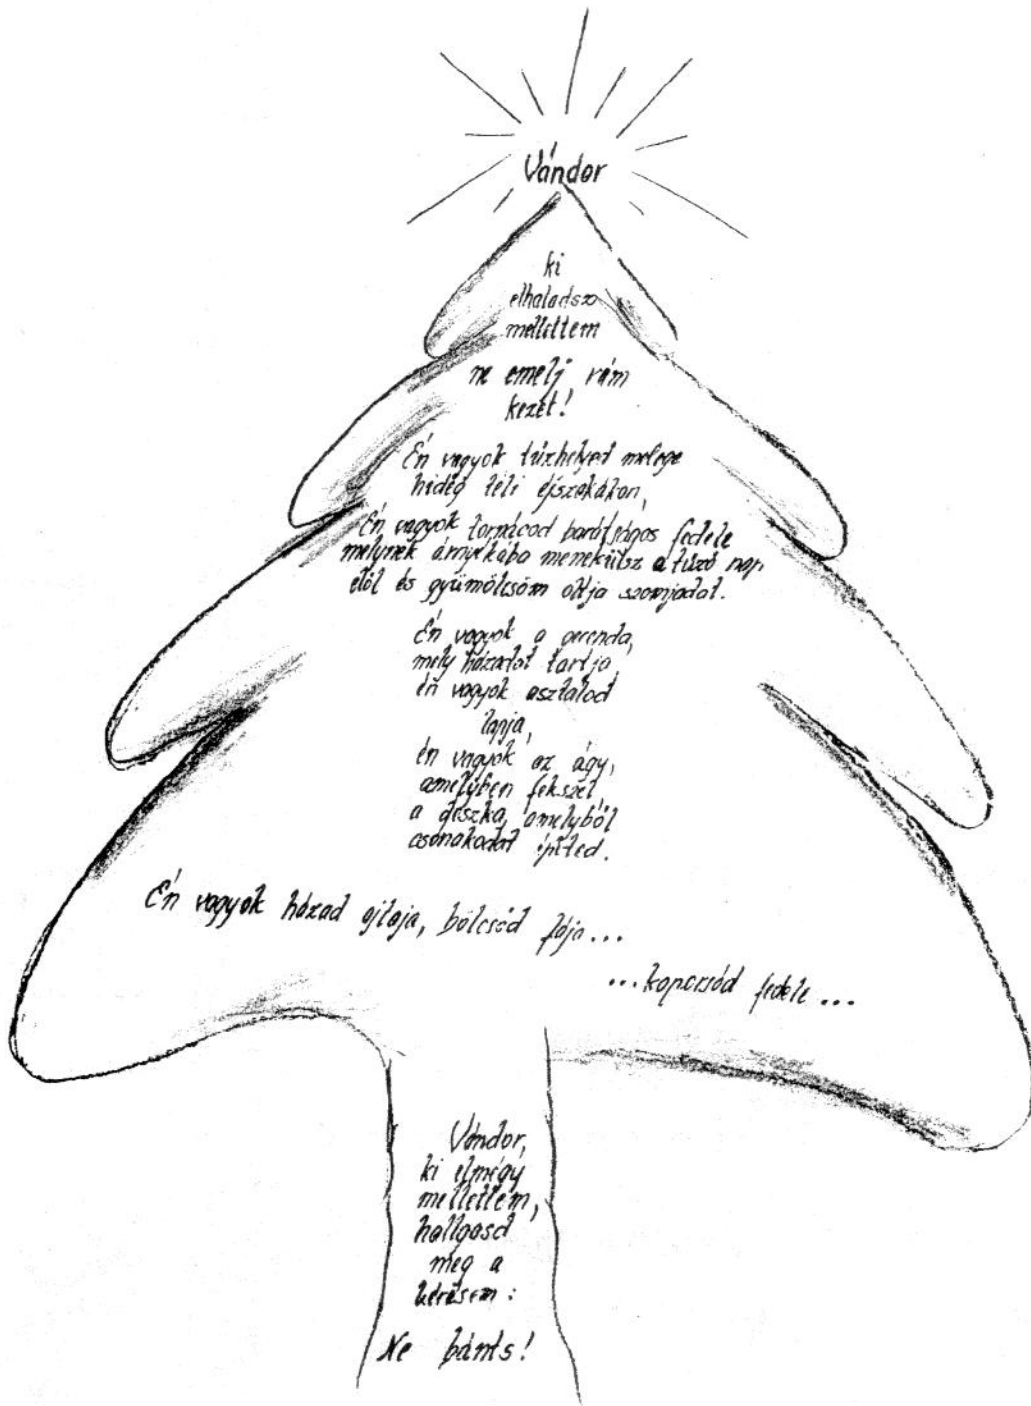 Vándor
ki
elhaladsz
mellettem
ne emelj rám
kezet!
Én vagyok tűzhelyed melege
hideg téli éjszakákon,
Én vagyok tornácod barátságos fedele
melynek árnyékába menekülsz a tűző nap
elől és gyümölcsöm oltja szomjadat.
Én vagyok a gerenda,
mely házadat tartja,
én vagyok asztalod
lapja,
én vagyok az ágy,
amelyben fekszel,
a deszka, amelyből
csónakodat építed.
Én vagyok házad ajtaja, bölcsőd fája...
...koporsód fedele...
Vándor,
ki elmégy
mellettem,
hallgasd
meg a
kérésem:
Ne bánts!